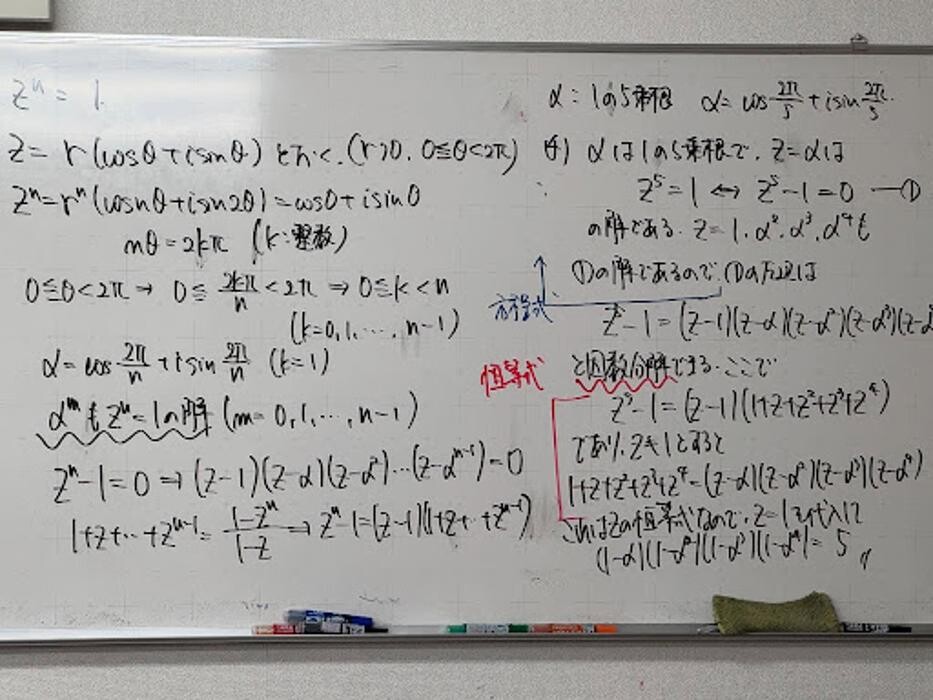 zⁿ = 1
z = r(cosθ+isinθ) とおく. (r>0, 0≦θ<2π)
zⁿ=rⁿ(cosnθ+isin2θ)=cos0+isin0
nθ = 2kπ (k:整数)
0≦θ<2π → 0≦ 2kπ/n <2π ⇒ 0≦k<n
(k=0,1,…,n-1)
α=cos 2π/n +isin 2π/n (k=1)
α^m も zⁿ=1の解 (m=0,1,…,n-1)
zⁿ-1=0 ⇒ (z-1)(z-α)(z-α²)…(z-α^(n-1))=0
1+z+…+z^(n-1) = (1-zⁿ)/(1-z) ⇒ zⁿ-1=(z-1)(1+z+…+z^(n-1))
α:1の5乗根 α=cos 2π/5 +isin 2π/5.
αは1の5乗根で, z=αは
z⁵=1 ⇔ z⁵-1=0 —①
の解である. z=1,α²,α³,α⁴も
①の解であるので,①の方程式は
方程式
z⁵-1=(z-1)(z-α)(z-α²)(z-α³)(z-α
恒等式
と因数分解できる. ここで
z⁵-1=(z-1)(1+z+z²+z³+z⁴)
であり, z≠1とすると
1+z+z²+z³+z⁴=(z-α)(z-α²)(z-α³)(z-α⁴)
これはzの恒等式なので, z=1を代入して
(1-α)(1-α²)(1-α³)(1-α⁴)=5